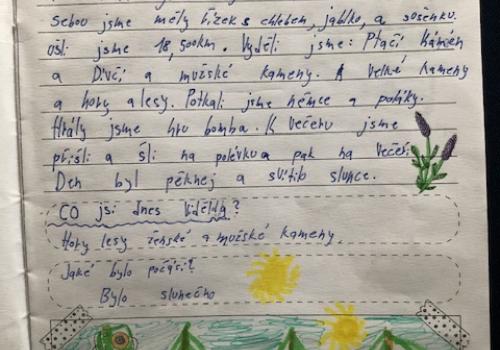 Sebou jsme měly řízek s chlebem, jablko, a sušenku.
ušli jsme 18,500km. Vyděli jsme: Ptačí kámen
a Dívčí a mužské kameny. A velké kameny
a hory a lesy. Potkali jsme němce a poláky.
Hrály jsme hru bomba. K večeru jsme
přišli a šli na polévku a pak na večeři.
Den byl pěknej a svítilo slunce.
CO jsi dnes viděl/a?
Hory lesy ženské a mužské kameny.
Jaké bylo počasí?
Bylo slunečno